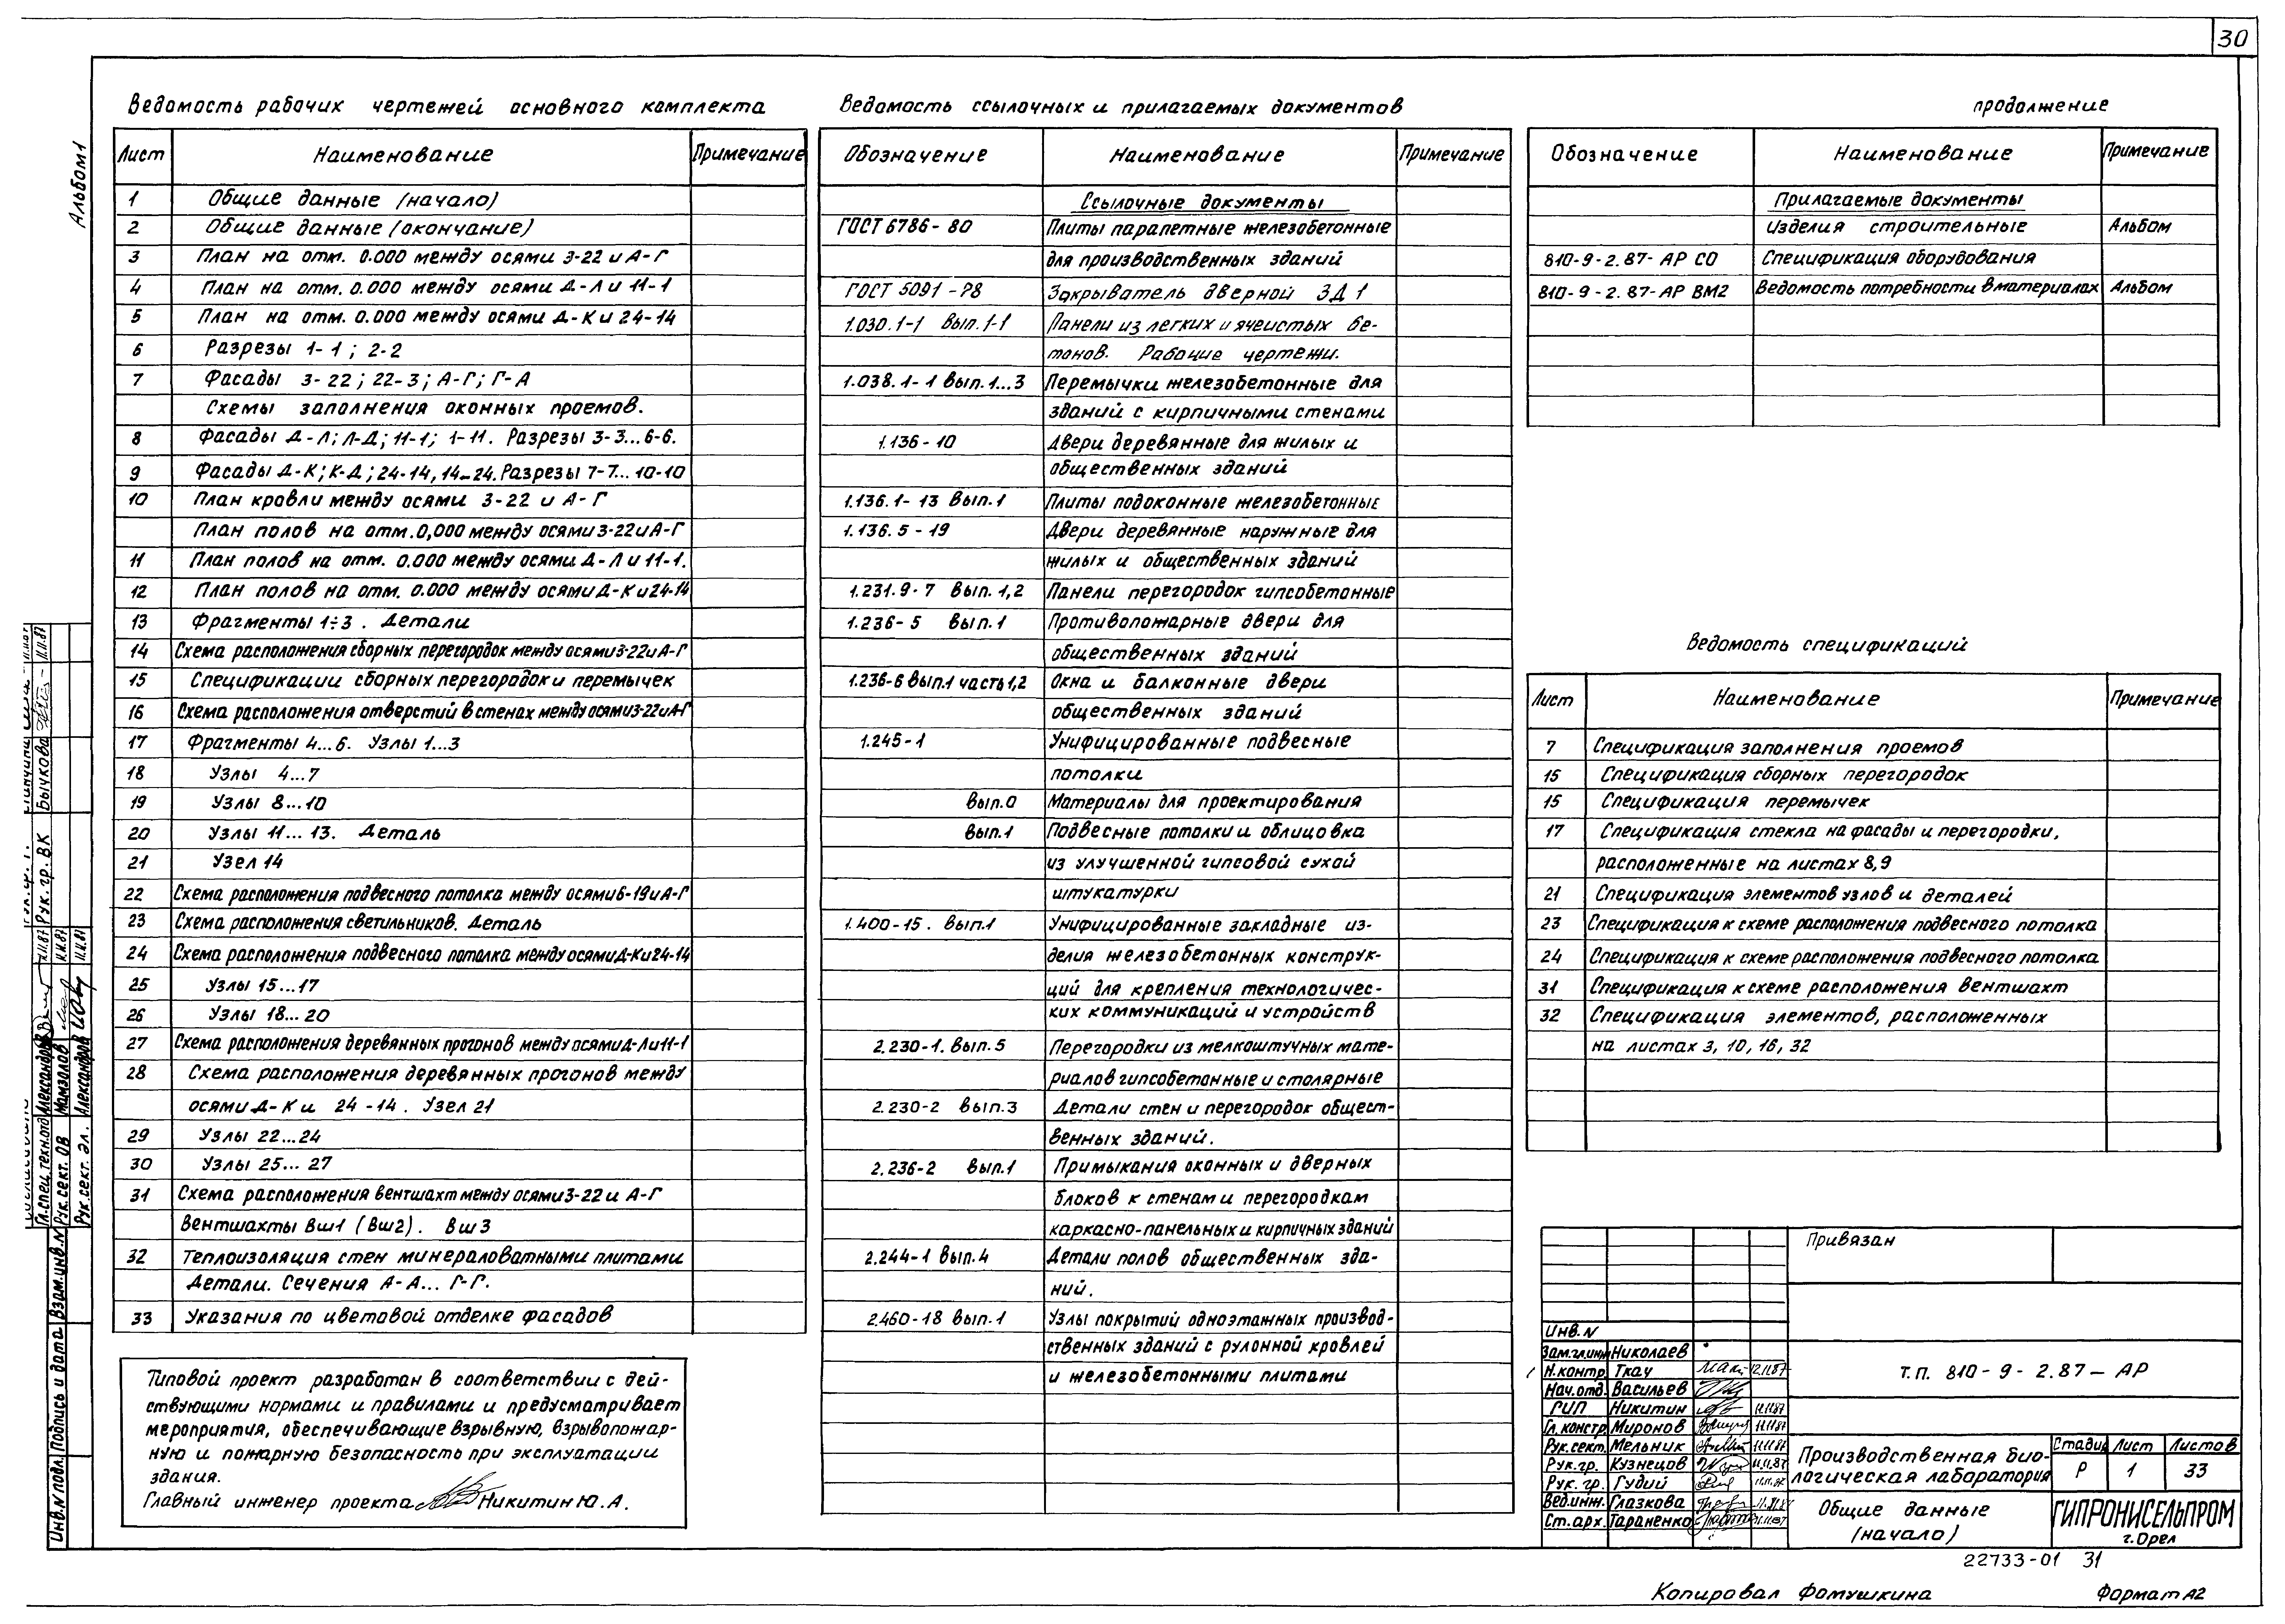 30
Альбом 1
Ведомость рабочих чертежей основного комплекта
Лист Наименование Примечание
1 Общие данные (начало)
2 Общие данные (окончание)
3 План на отм. 0.000 между осями 3-22 и А-Г
4 План на отм. 0.000 между осями Д-Л и 11-1
5 План на отм. 0.000 между осями Д-К и 24-14
6 Разрезы 1-1; 2-2
7 Фасады 3-22; 22-3; А-Г; Г-А
Схемы заполнения оконных проемов.
8 Фасады Д-Л; Л-Д; 11-1; 1-11. Разрезы 3-3...6-6.
9 Фасады Д-К; К-Д; 24-14, 14-24. Разрезы 7-7...10-10
10 План кровли между осями 3-22 и А-Г
План полов на отм. 0,000 между осями 3-22 и А-Г
11 План полов на отм. 0.000 между осями Д-Л и 11-1.
12 План полов на отм. 0.000 между осями Д-К и 24-14
13 Фрагменты 1÷3. Детали
14 Схема расположения сборных перегородок между осями 3-22 и А-Г
15 Спецификации сборных перегородок и перемычек
16 Схема расположения отверстий в стенах между осями 3-22 и А-Г
17 Фрагменты 4...6. Узлы 1...3
18 Узлы 4...7
19 Узлы 8...10
20 Узлы 11...13. Деталь
21 Узел 14
22 Схема расположения подвесного потолка между осями 6-19 и А-Г
23 Схема расположения светильников. Деталь
24 Схема расположения подвесного потолка между осями Д-К и 24-14
25 Узлы 15...17
26 Узлы 18...20
27 Схема расположения деревянных прогонов между осями Д-Л и 11-1
28 Схема расположения деревянных прогонов между
осями Д-К и 24-14. Узел 21
29 Узлы 22...24
30 Узлы 25...27
31 Схема расположения вентшахт между осями 3-22 и А-Г
Вентшахты Вш1 (Вш2). Вш3
32 Теплоизоляция стен минераловатными плитами
Детали. Сечения А-А...Г-Г.
33 Указания по цветовой отделке фасадов
Типовой проект разработан в соответствии с дей-
ствующими нормами и правилами и предусматривает
мероприятия, обеспечивающие взрывную, взрывопожар-
ную и пожарную безопасность при эксплуатации
здания.
Главный инженер проекта Никитин Ю.А.
Ведомость ссылочных и прилагаемых документов
Обозначение Наименование Примечание
Ссылочные документы
ГОСТ 6786-80 Плиты парапетные железобетонные
для производственных зданий
ГОСТ 5091-78 Закрыватель дверной ЗД 1
1.030.1-1 Вып.1-1 Панели из легких и ячеистых бе-
тонов. Рабочие чертежи.
1.038.1-1 Вып.1...3 Перемычки железобетонные для
зданий с кирпичными стенами
1.136-10 Двери деревянные для жилых и
общественных зданий
1.136.1-13 Вып.1 Плиты подоконные железобетонные
1.136.5-19 Двери деревянные наружные для
жилых и общественных зданий
1.231.9-7 Вып.1,2 Панели перегородок гипсобетонные
1.236-5 Вып.1 Противопожарные двери для
общественных зданий
1.236-6 Вып.1 часть 1,2 Окна и балконные двери
общественных зданий
1.245-1 Унифицированные подвесные
потолки
Вып.0 Материалы для проектирования
Вып.1 Подвесные потолки и облицовка
из улучшенной гипсовой сухой
штукатурки
1.400-15. Вып.1 Унифицированные закладные из-
делия железобетонных конструк-
ций для крепления технологичес-
ких коммуникаций и устройств
2.230-1. Вып.5 Перегородки из мелкоштучных мате-
риалов гипсобетонные и столярные
2.230-2 Вып.3 Детали стен и перегородок общест-
венных зданий.
2.236-2 Вып.1 Примыкания оконных и дверных
блоков к стенам и перегородкам
каркасно-панельных и кирпичных зданий
2.244-1 Вып.4 Детали полов общественных зда-
ний.
2.460-18 Вып.1 Узлы покрытий одноэтажных производ-
ственных зданий с рулонной кровлей
и железобетонными плитами
продолжение
Обозначение Наименование Примечание
Прилагаемые документы
Изделия строительные Альбом
810-9-2.87-АР СО Спецификация оборудования
810-9-2.87-АР ВМ2 Ведомость потребности в материалах Альбом
Ведомость спецификаций
Лист Наименование Примечание
7 Спецификация заполнения проемов
15 Спецификация сборных перегородок
15 Спецификация перемычек
17 Спецификация стекла на фасады и перегородки,
расположенные на листах 8,9
21 Спецификация элементов узлов и деталей
23 Спецификация к схеме расположения подвесного потолка
24 Спецификация к схеме расположения подвесного потолка
31 Спецификация к схеме расположения вентшахт
32 Спецификация элементов, расположенных
на листах 3, 10, 16, 32
Привязан
Инв.N
Зам.гл.инж Николаев
Н.контр. Ткач 12.11.87
Нач.отд. Васильев
ГИП Никитин 11.11.87
Гл.констр. Миронов 11.11.87
Рук.сект. Мельник 11.11.87
Рук.гр. Кузнецов 11.11.87
Рук.гр. Гудий 11.11.87
Вед.инж. Глазкова 11.11.87
Ст.арх. Тараненко 11.11.87
Т.П. 810-9-2.87-АР
Производственная био-
логическая лаборатория
Стадия Лист Листов
Р 1 33
Общие данные
(начало)
ГИПРОНИСЕЛЬПРОМ
г.Орел
22733-01 31
Копировал Фомушкина Формат А2
Рук.гр. ВК Бычкова 11.11.87
Гл.спец.техн.отд Александров 11.11.87
Рук.сект. ОВ Мамзолов 11.11.87
Рук.сект. эл. Александров 11.11.87
Инв.N подл. Подпись и дата Взам.инв.N